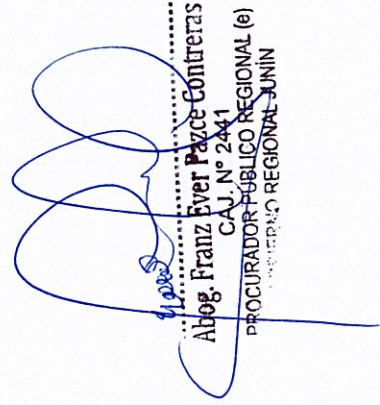 Abog. Franz Ever Pazce Contreras
CAJ. N° 2441
PROCURADOR PÚBLICO REGIONAL (e)
GOBIERNO REGIONAL JUNÍN